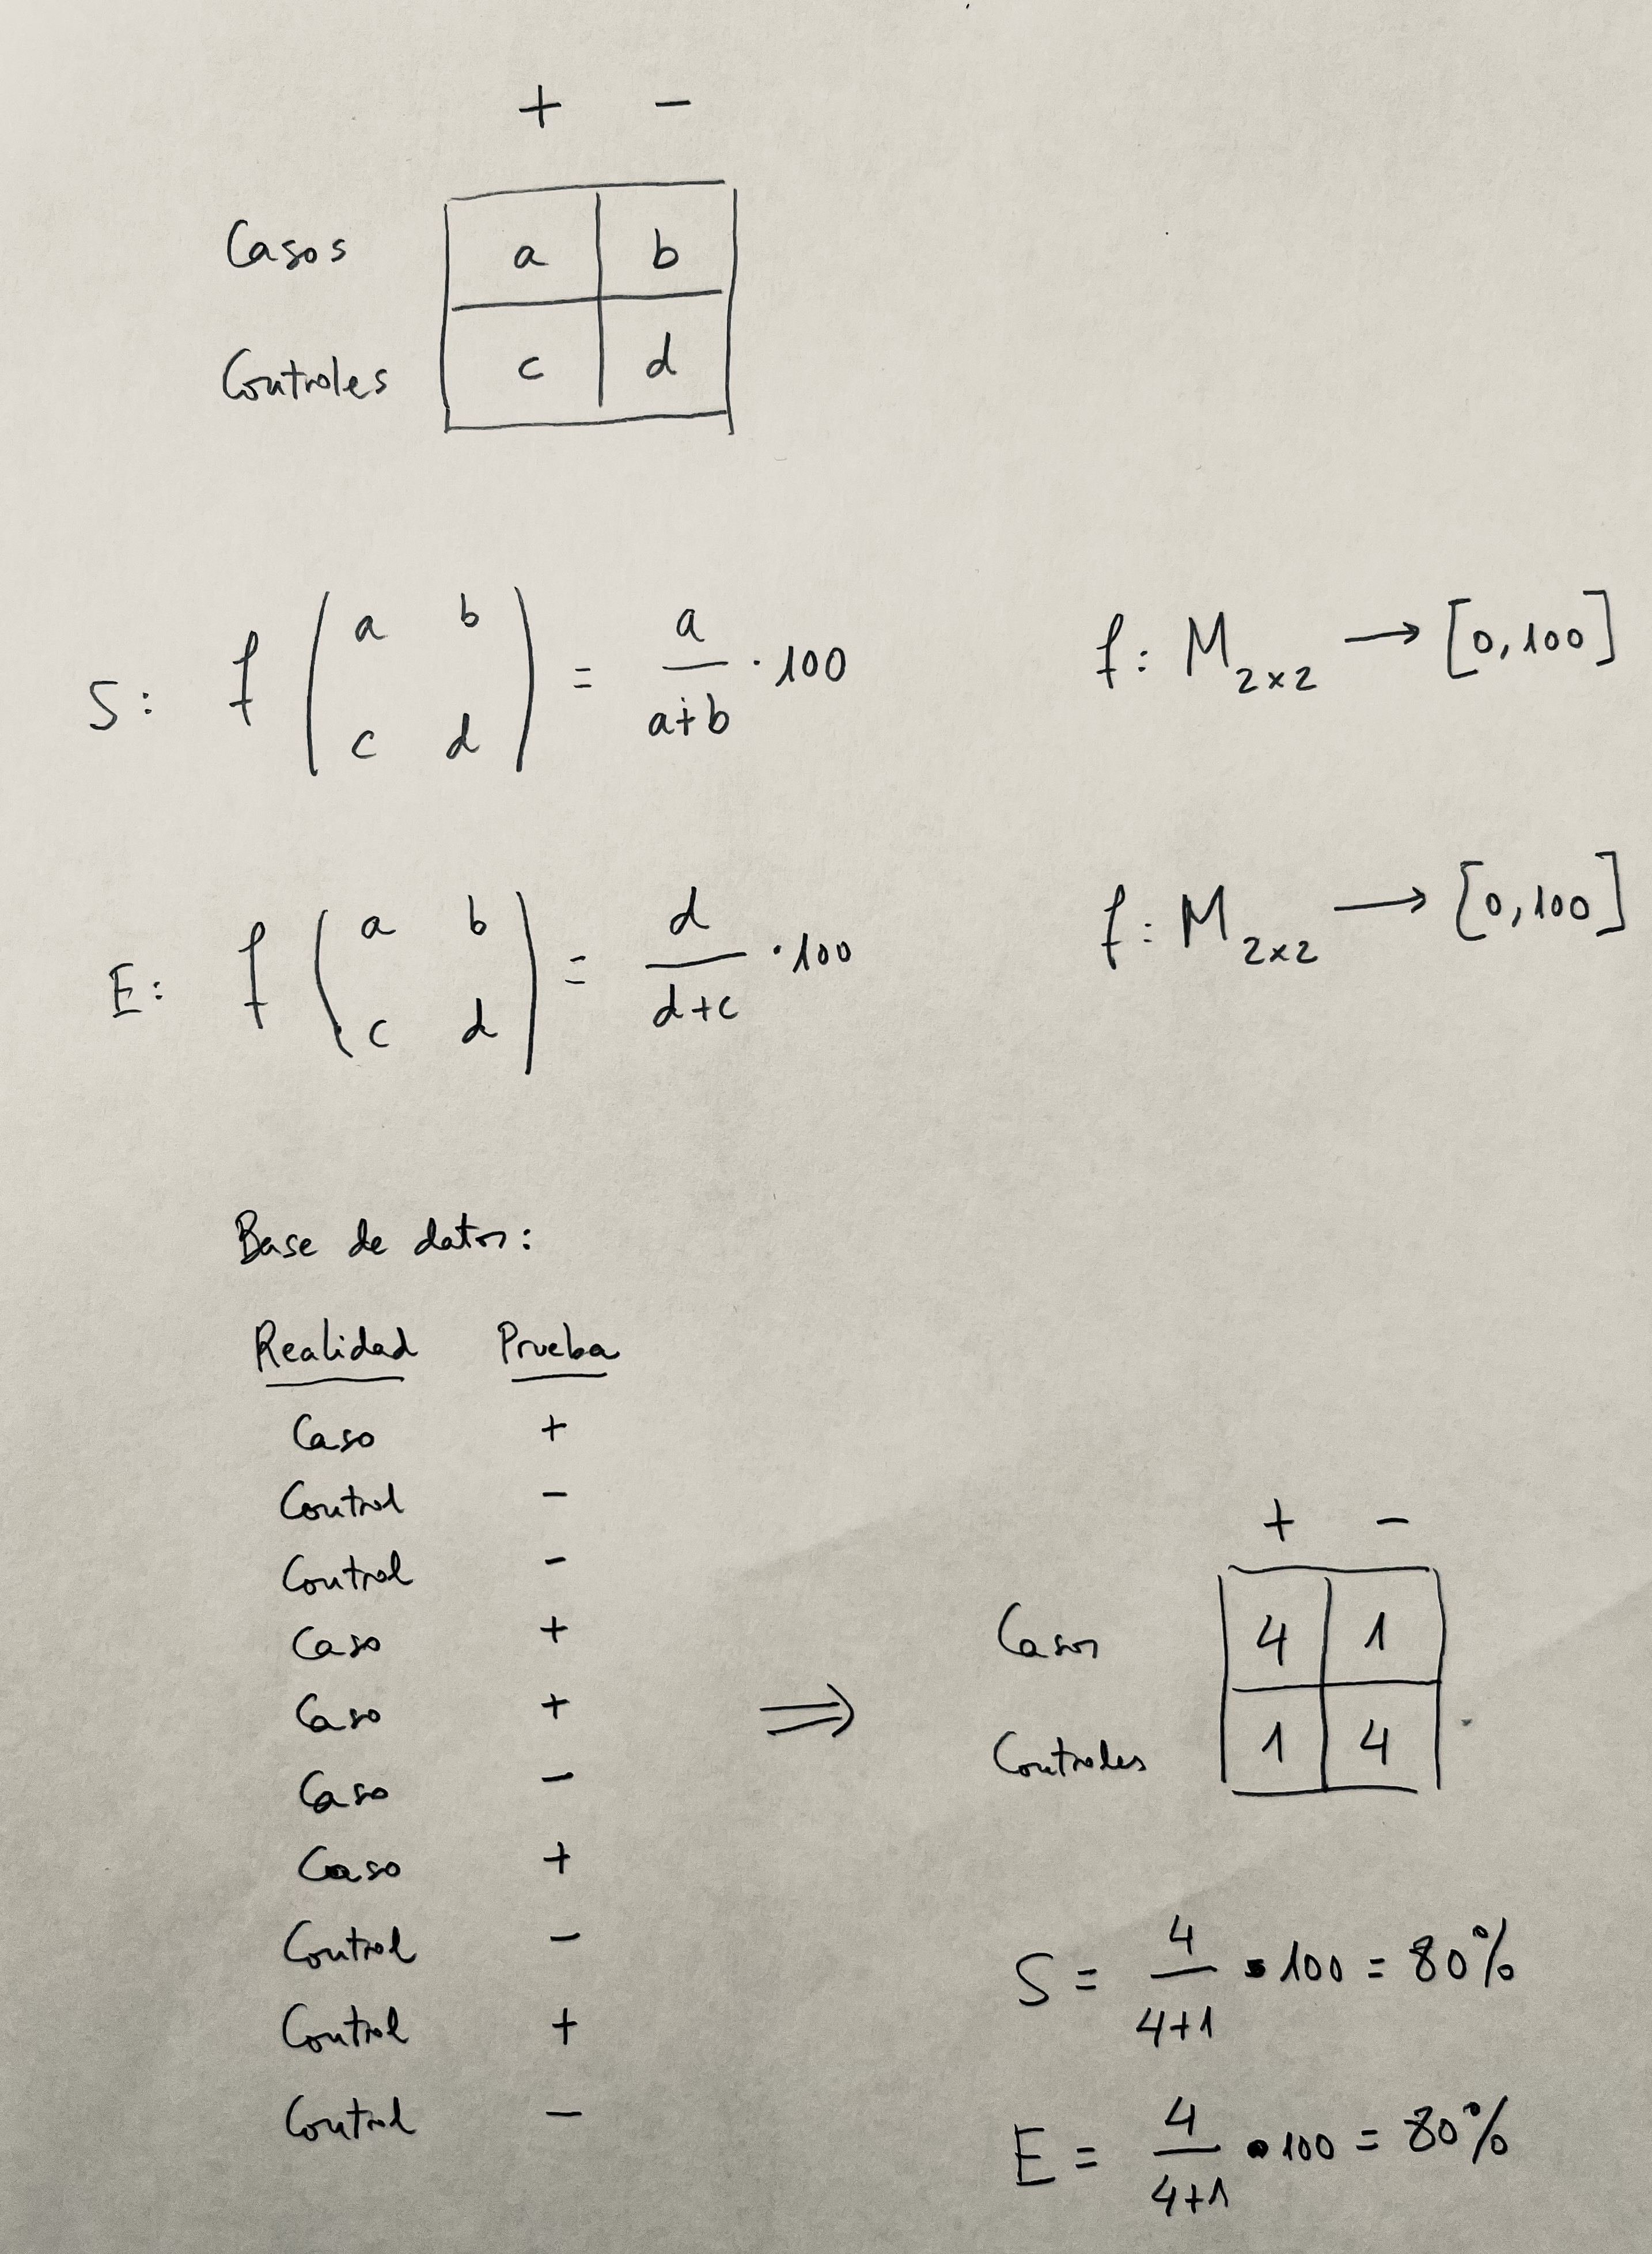 + -
Casos a b
Controles c d
S: f ( a b c d ) = a / a+b · 100 f: M 2x2 → [0,100]
E: f ( a b c d ) = d / d+c · 100 f: M 2x2 → [0,100]
Base de datos:
Realidad Prueba
Caso +
Control -
Control -
Caso +
Caso +
Caso -
Caso +
Control -
Control +
Control -
⇒
+ -
Casos 4 1
Controles 1 4
S = 4 / 4+1 · 100 = 80%
E = 4 / 4+1 · 100 = 80%